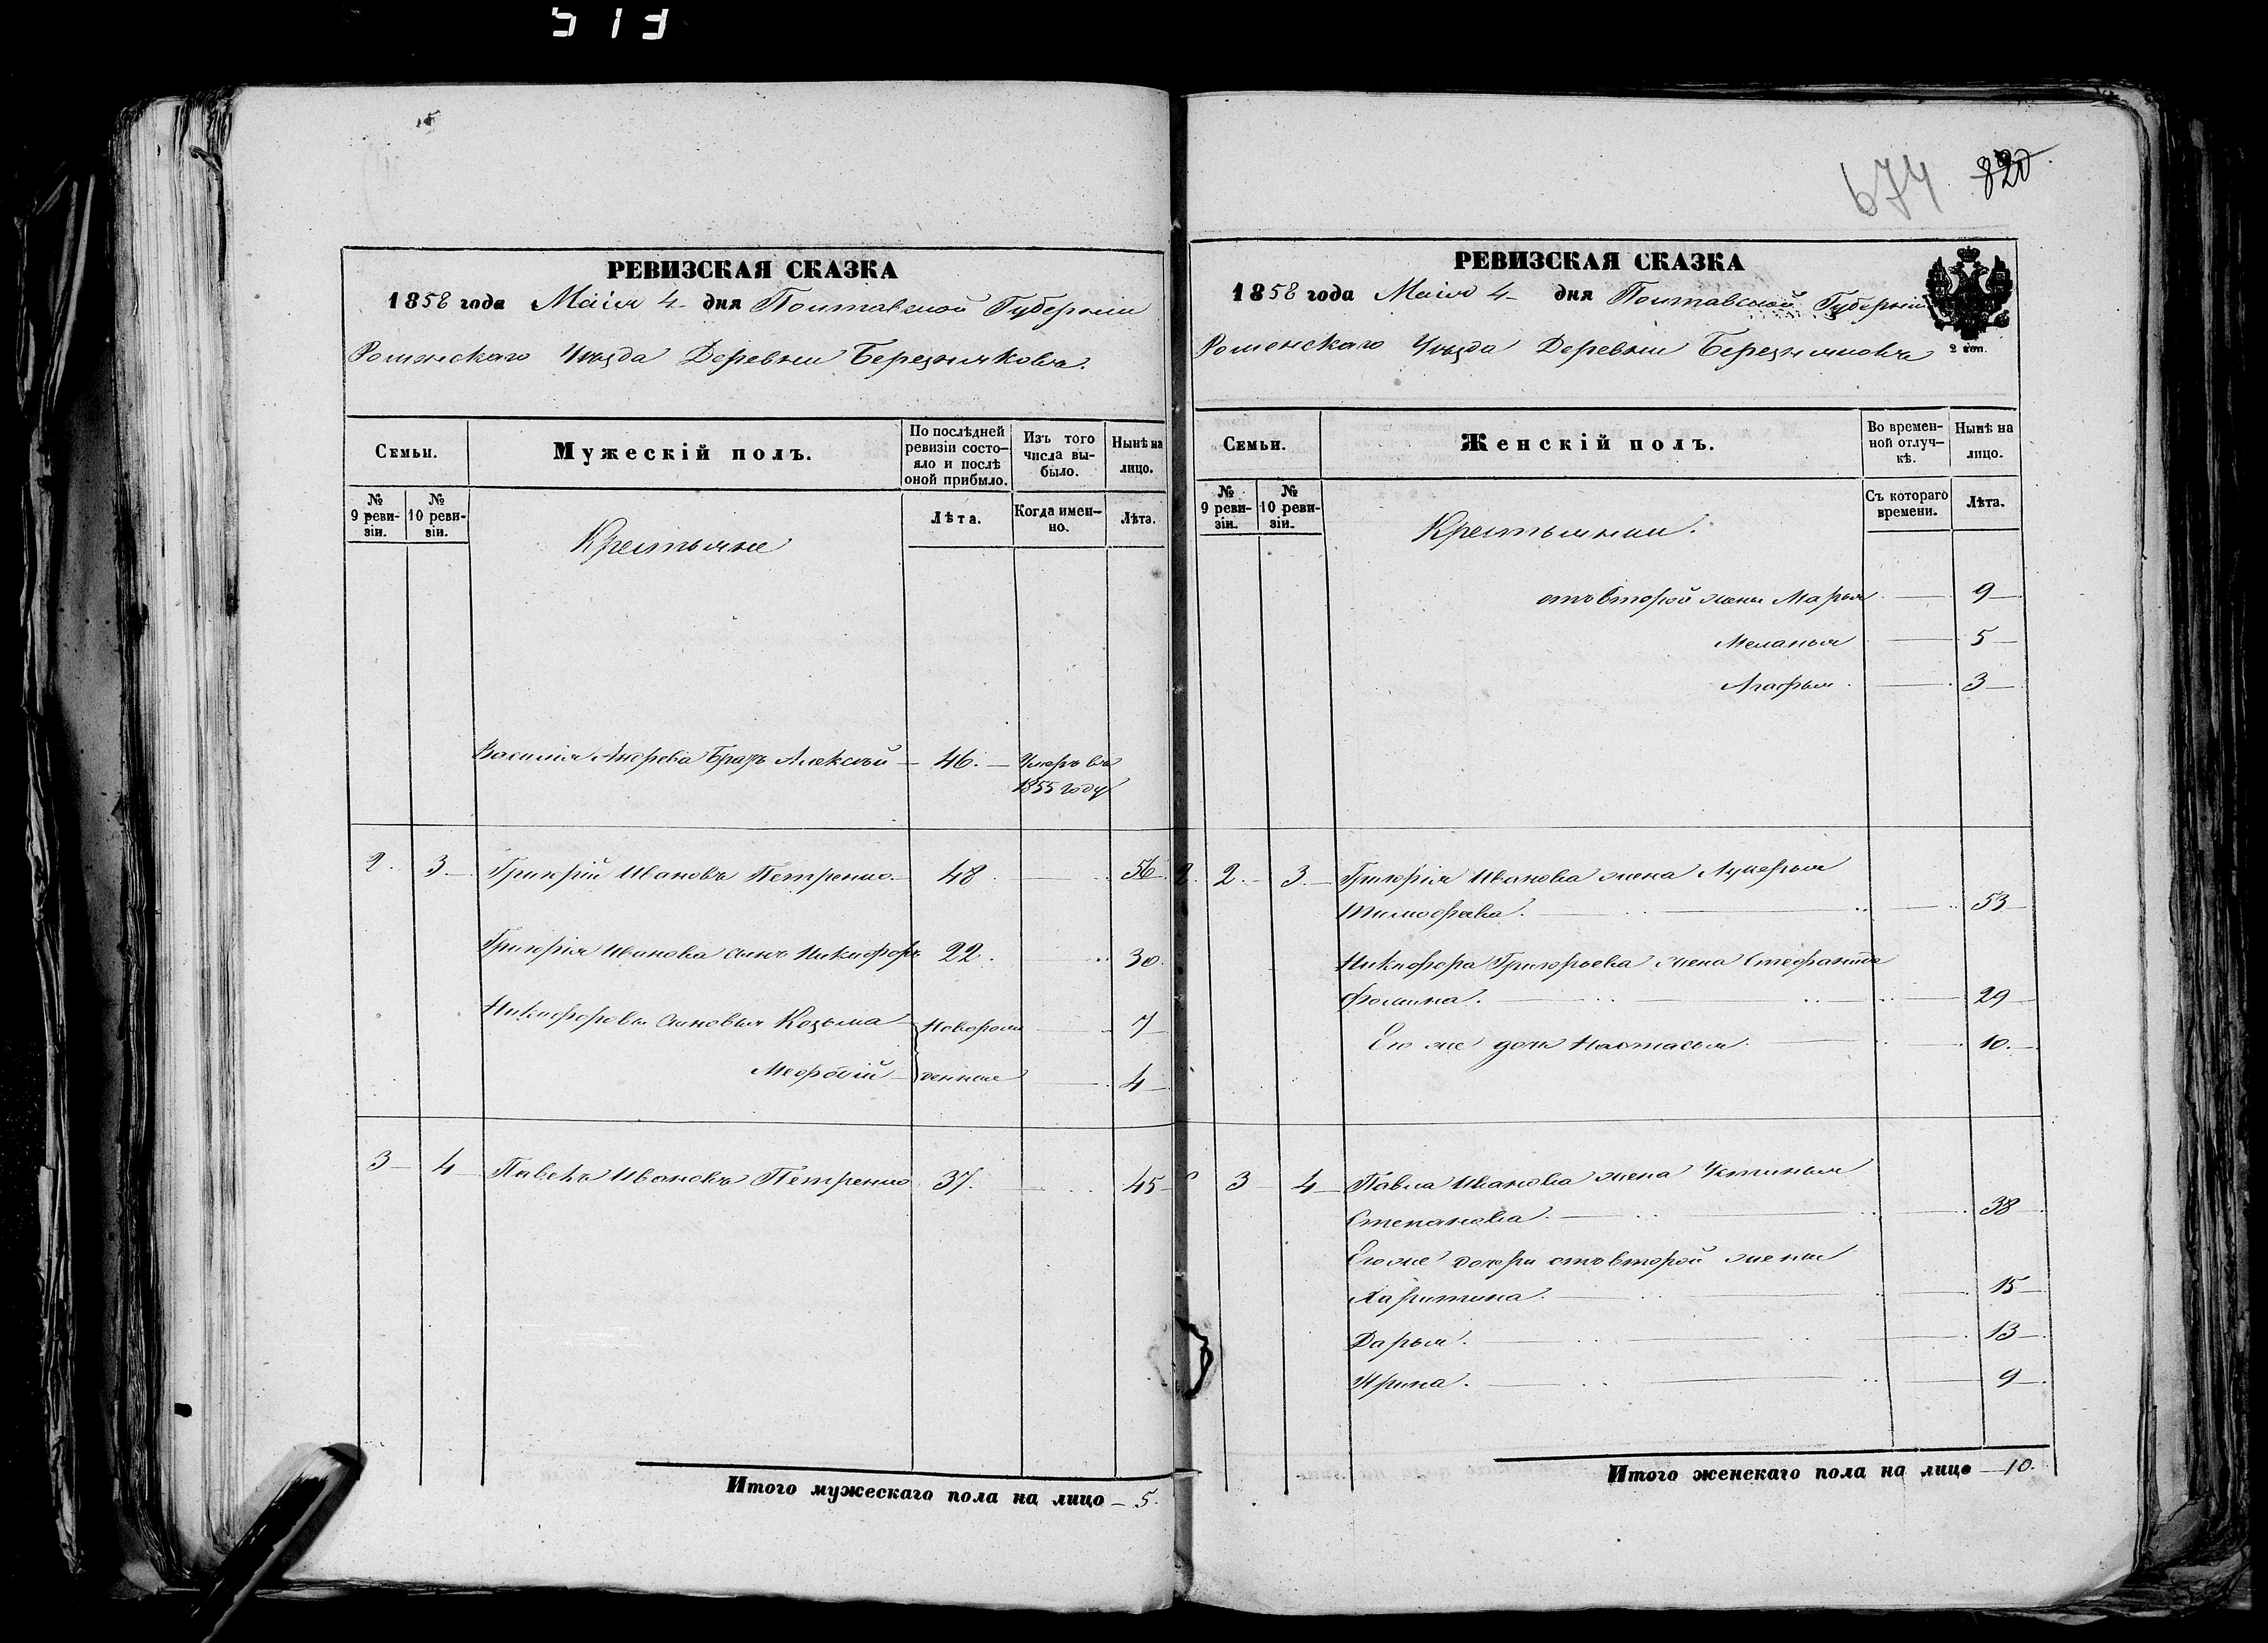 513
РЕВИЗСКАЯ СКАЗКА
1858 года Маія 4 дня Полтавской Губерніи
Роменскаго Уѣзда Деревни Березняковъ.
Семьи.
Мужескій полъ.
По послѣдней ревизіи состояло и послѣ оной прибыло.
Изъ того числа выбыло.
Нынѣ на лицо.
№ 9 ревизіи.
№ 10 ревизіи.
Крестьяне
Лѣта.
Когда именно.
Лѣта.
Василія Андреева братъ Алексѣй — 46. — Умеръ въ
1855 году
2. 3. Григорій Ивановъ Петренко. 48. 56
Григорія Иванова сынъ Никифоръ 22. 30.
Никифоровы сыновья Козьма новорож 7
Мефодій денные 4
3 4 Павелъ Ивановъ Петренко 37. 45
Итого мужескаго пола на лицо — 5.
674 820
РЕВИЗСКАЯ СКАЗКА
1858 года Маія 4 дня Полтавской Губерніи
2 коп.
Роменскаго Уѣзда Деревни Березняковъ
Семьи.
Женскій полъ.
Во временной отлучкѣ.
Нынѣ на лицо.
№ 9 ревизіи.
№ 10 ревизіи.
Крестьянки.
Съ котораго времени.
Лѣта.
отъ второй жены Марья 9
Меланья 5
Агафья 3
2. 3. Григорія Иванова жена Лукерья
Тимофеева. 53
Никифора Григорьева жена Стефанида
Фомина. 29
Его же дочь Настасья 10.
3 4 Павла Иванова жена Устинья
Степанова. 38
Его же дочери отъ второй жены
Харитина. 15
Дарья. 13
Ирина. 9
Итого женскаго пола на лицо — 10.